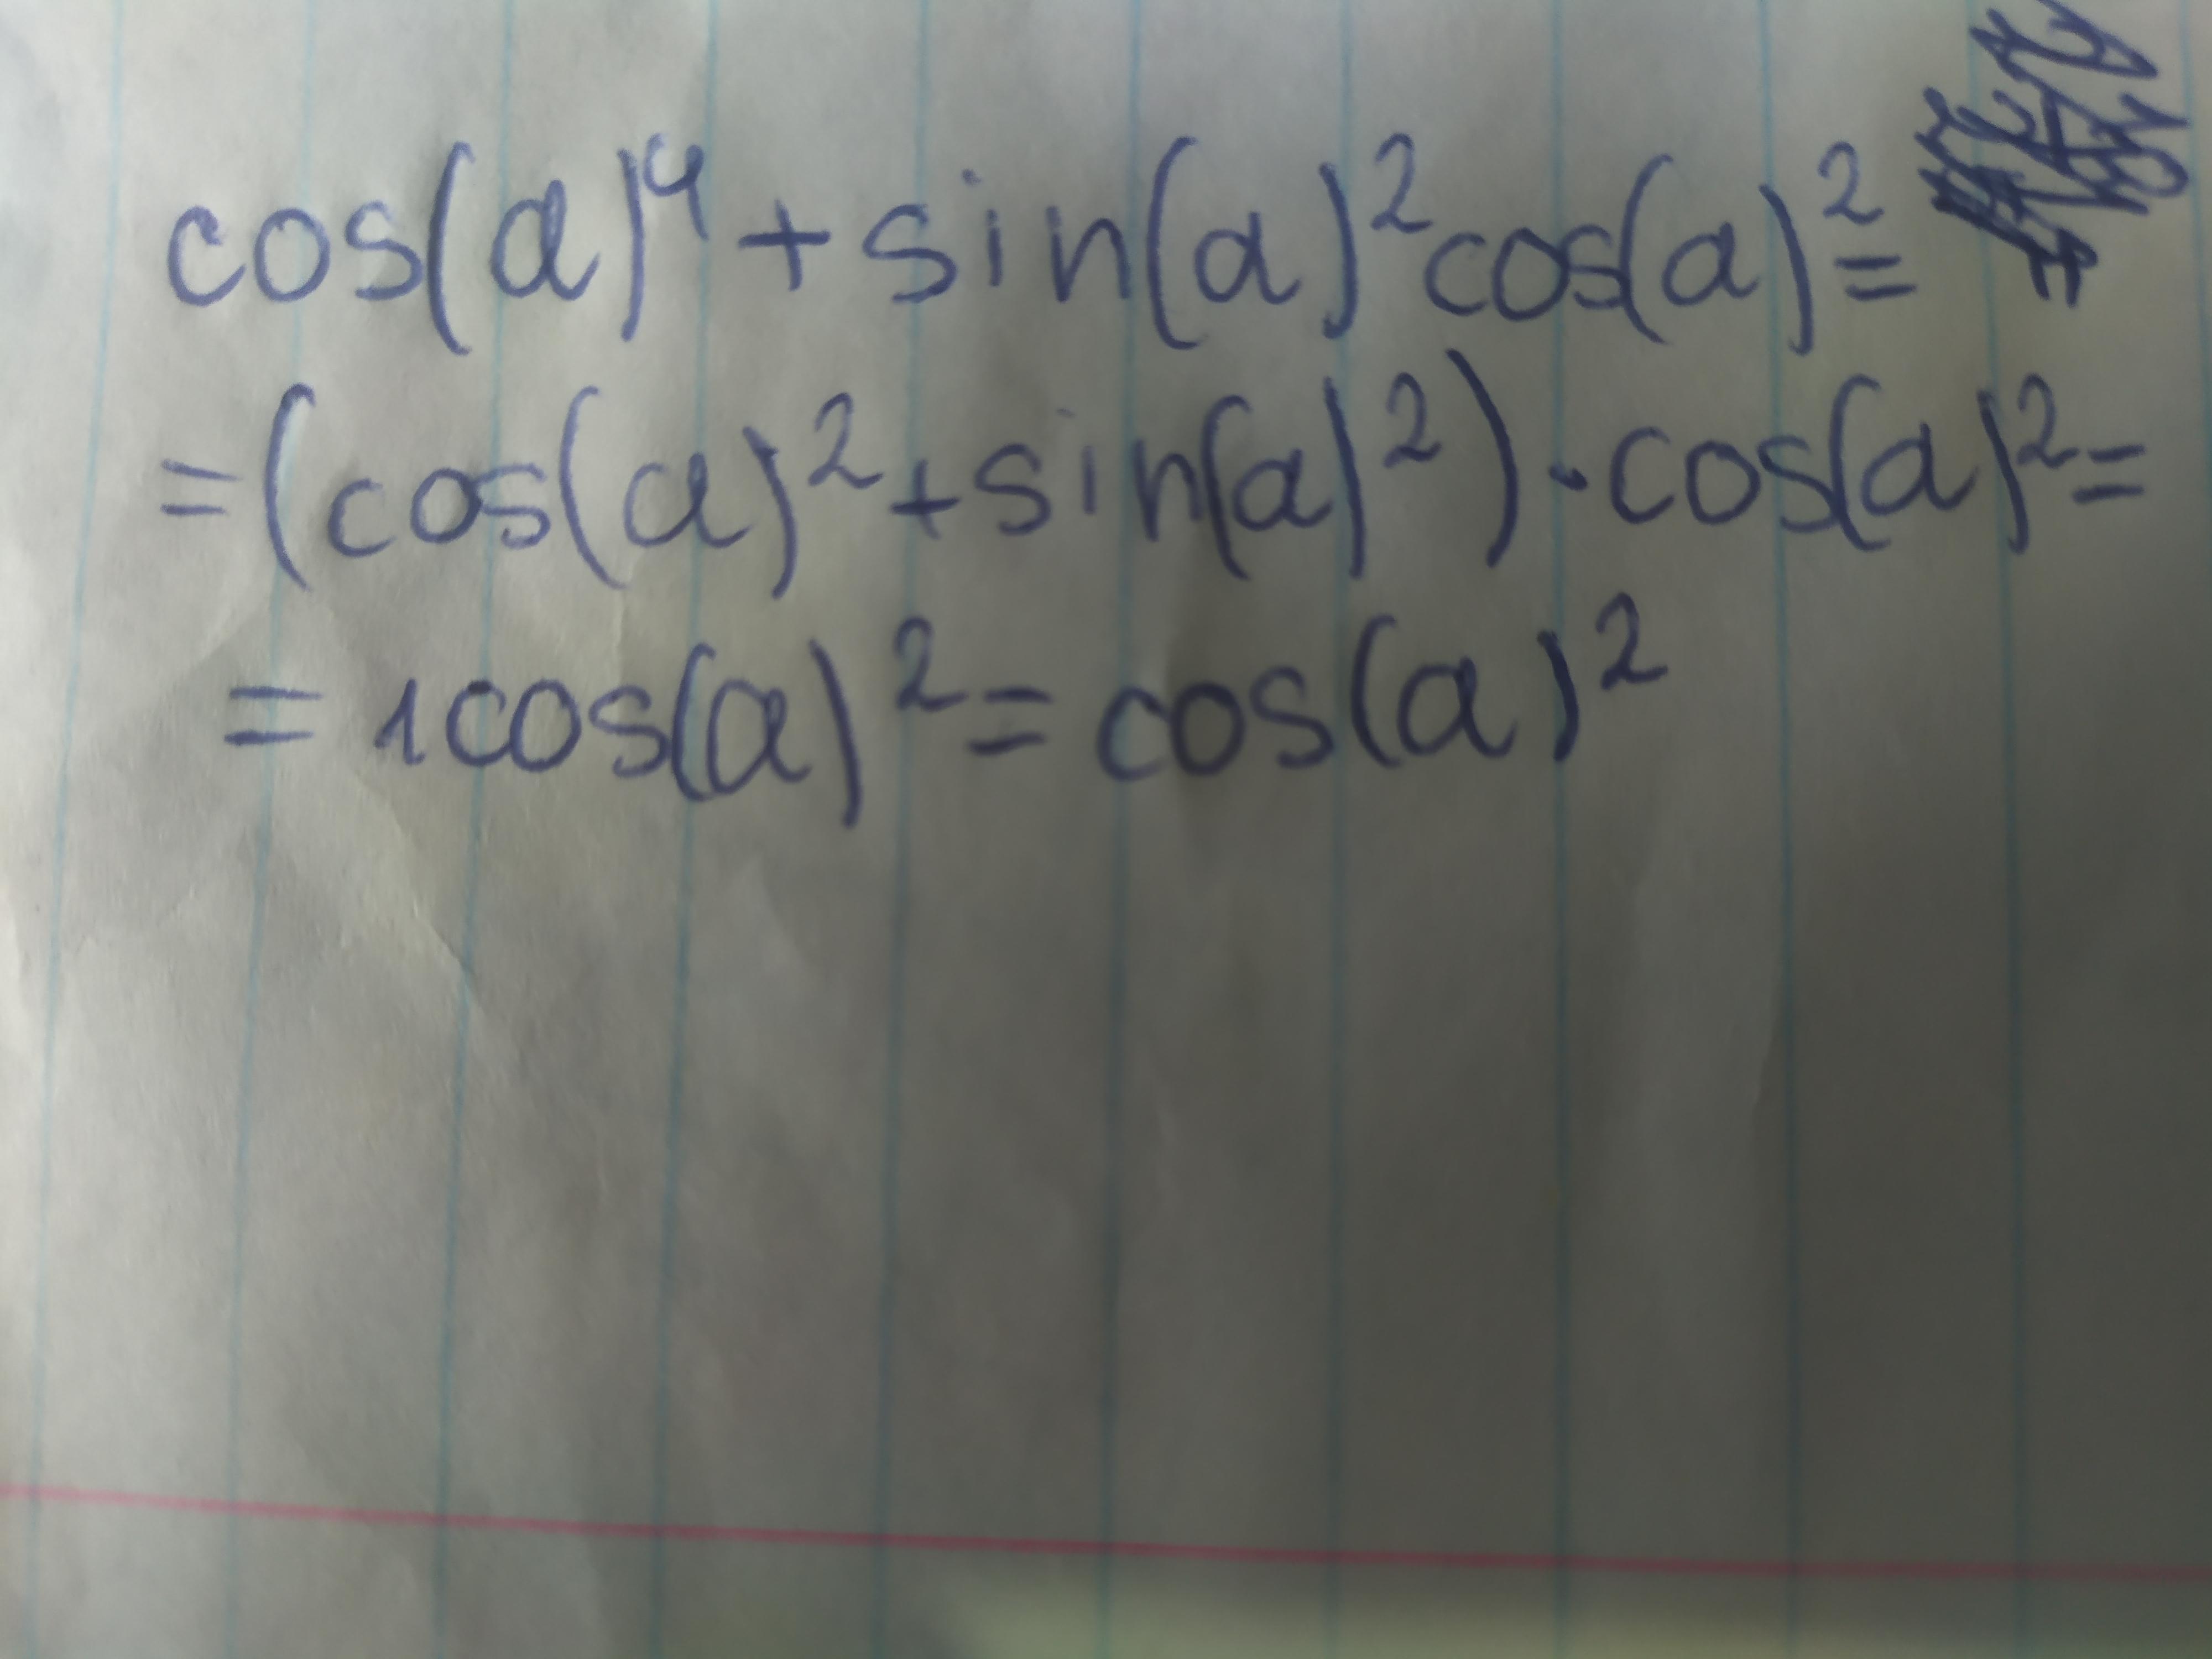 cos(a)⁴+sin(a)²cos(a)²=
=(cos(a)²+sin(a)²)·cos(a)²=
=1cos(a)²=cos(a)²